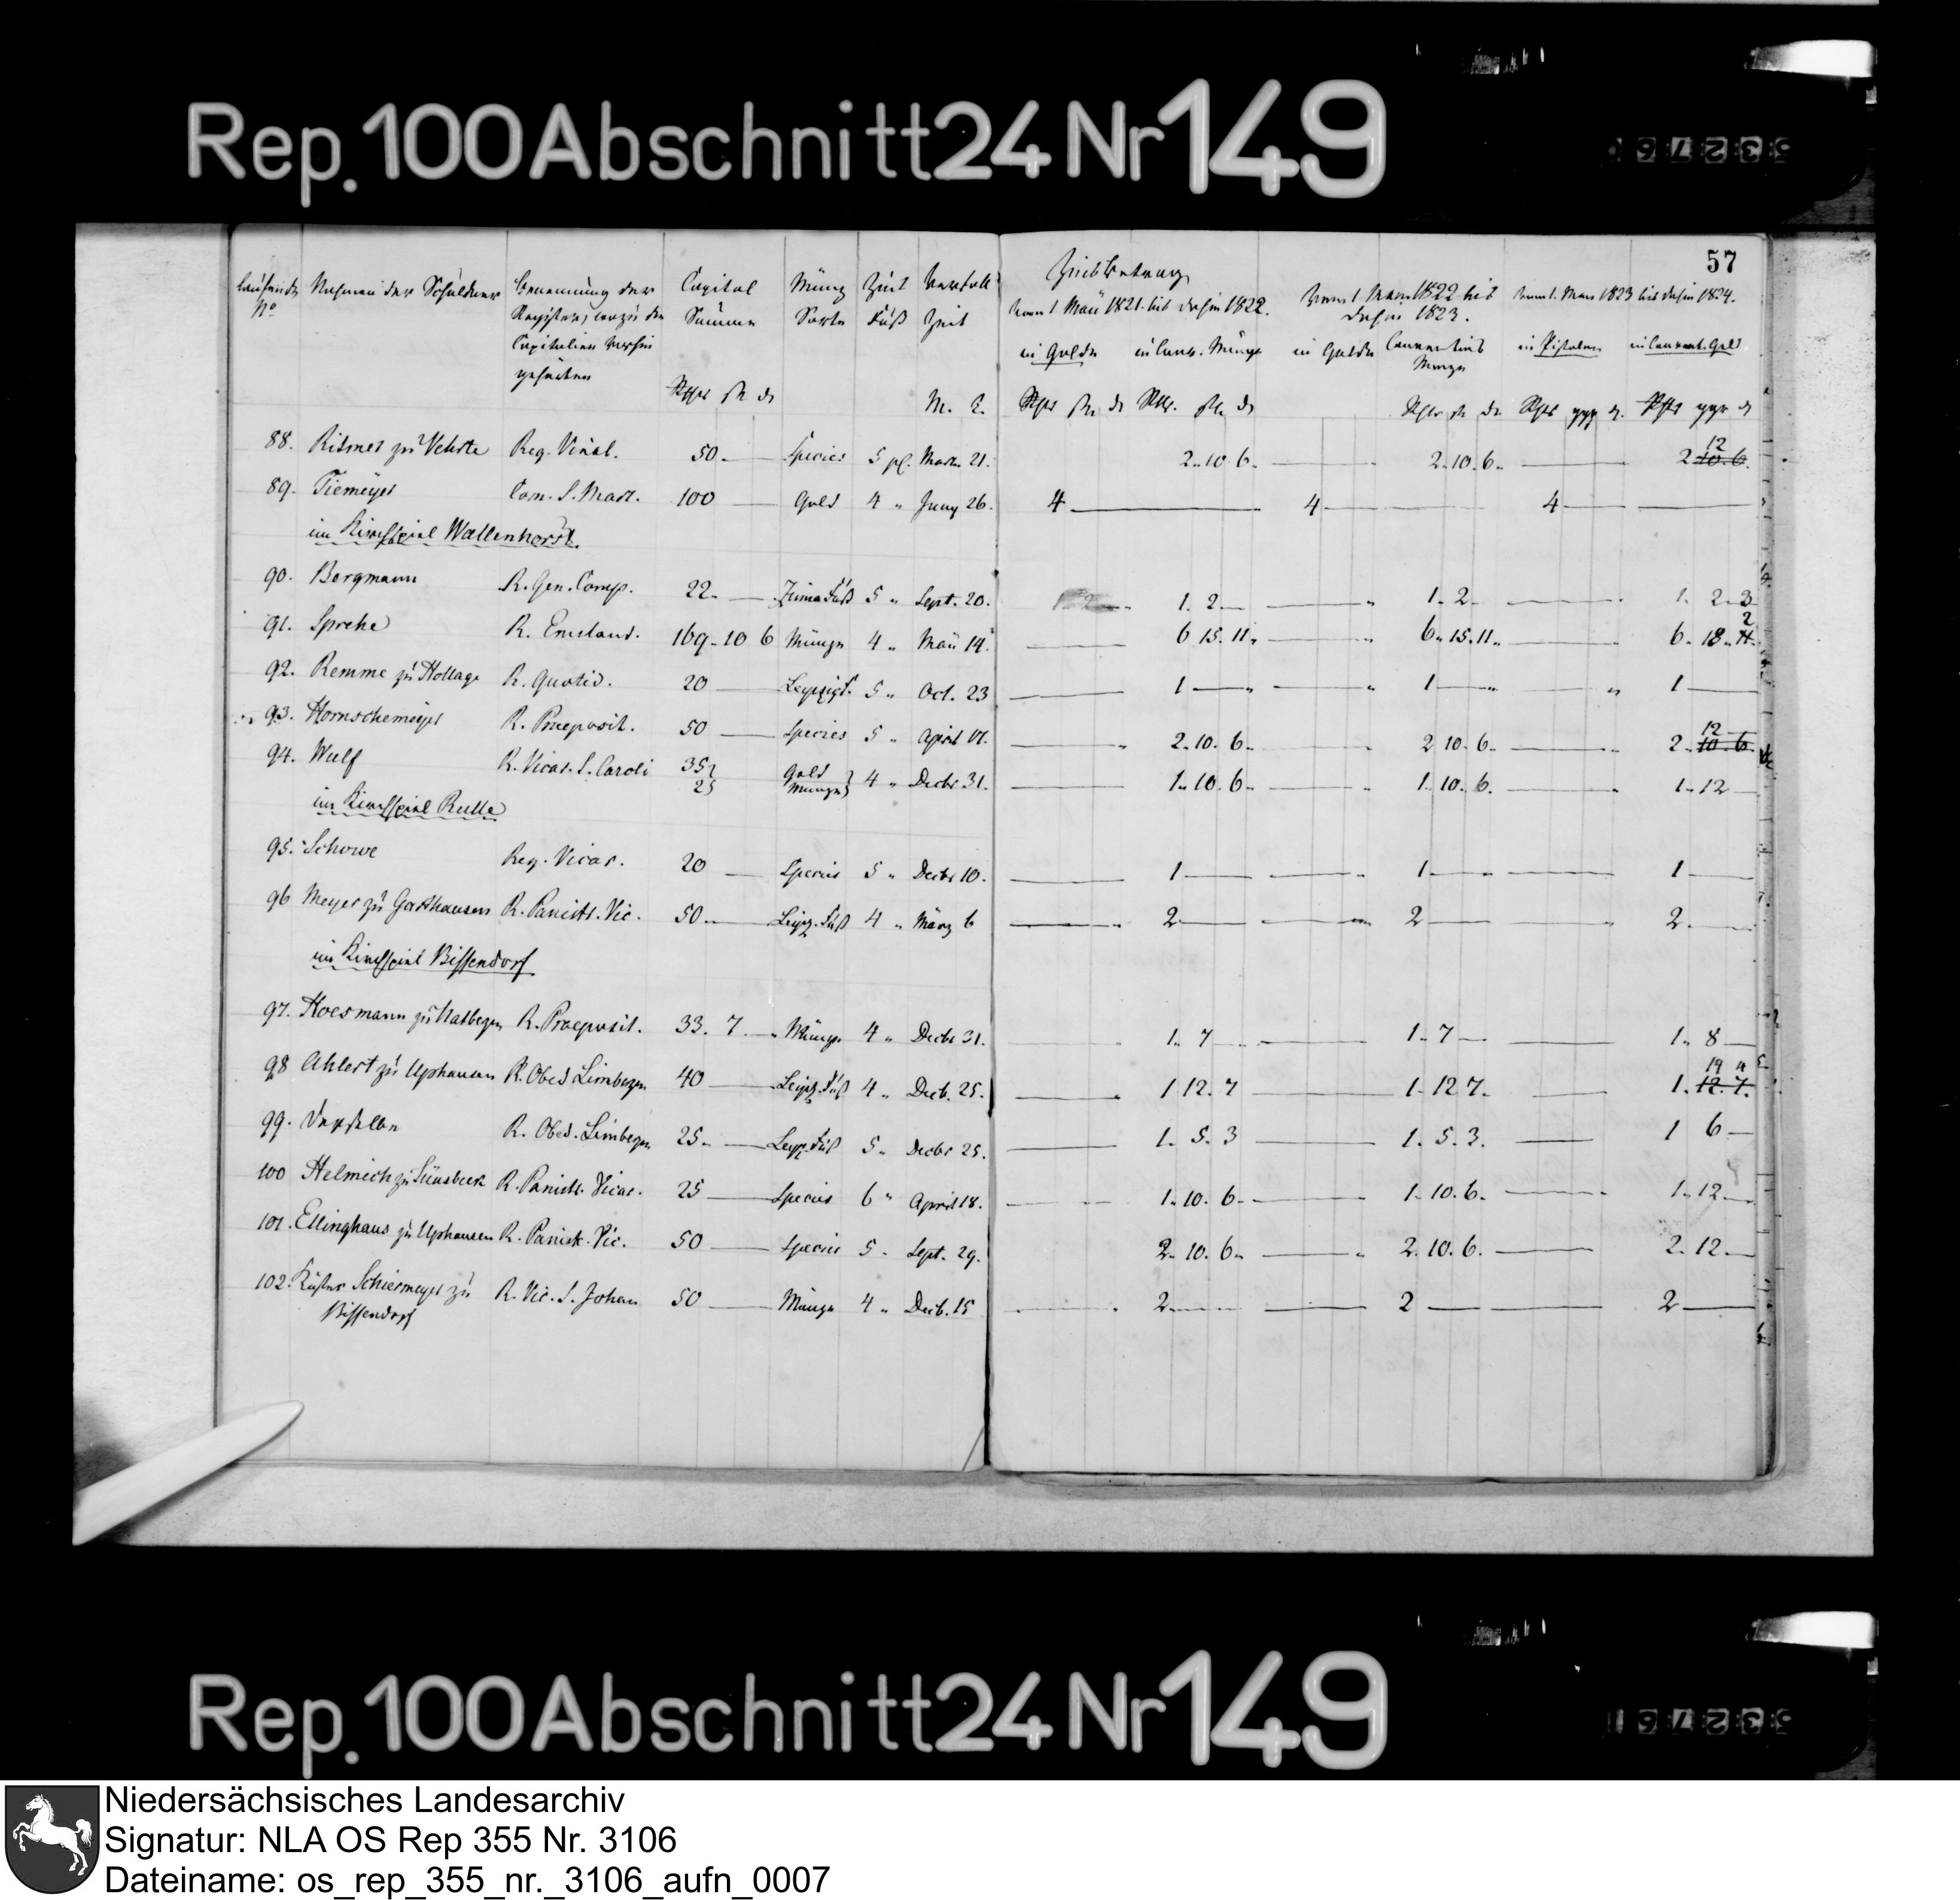 Rep. 100 Abschnitt 24 Nr 149
57
laufende No Nahmen der Schuldner Benennung der Register, wozu die Capitalien gehören Capital Summe Münz Sorte Zins Fuß Verfall Zeit
Zinsbetrag
vom 1. Mai 1821. bis dahin 1822. vom 1. Mai 1822 bis dahin 1823. vom 1. Mai 1823 bis dahin 1824.
in Golde in Conv. Münze in Golde Conventions Münze in Pistolen in Courant. Geld
88. zu Vehrte Reg. 50 Species 5 pC. 21. 2. 10. 6. 2. 10. 6. 2 12 10. 6.
89. Tiemeyer Com. S. Mart. 100 Gold 4 " Juny 26. 4 4 4
im Kirchspiel Wallenhorst.
90. Bergmann R. Gen. Comp. 22. 5 " Sept. 20. 1. 2 1. 2 1. 2. 3
91. Sprehe R. Emsland. 169. 10 6 Münze 4 " Mai 14. 6 15. 11. 6. 15. 11. 6. 18. 2
92. Remme zu Hollage R. Quotid. 20 Leipzigf. 5 " Oct. 23 1 1 1
93. Hornschemeyer R. Praeposit. 50 Species 5 " April 17. 2. 10. 6. 2 10. 6. 2. 12 10. 6.
94. Wulf R. Vicar. S. Caroli 35 25 Gold Münze 4 " Decbr 31. 1. 10. 6. 1. 10. 6. 1. 12
im Kirchspiel Rulle
95. Schowe Reg. Vicar. 20 Species 5 " Decbr 10. 1 1 1
96 Meyer zu R. Panistr. Vic. 50 Leipz. Fuß 4 " März 6 2 2 2
im Kirchspiel Bissendorf
97. zu Natbergen R. Praeposit. 33. 7. Münze 4 " Decbr 31. 1. 7 1. 7 1. 8
98 Ahlert zu Uphausen R. Obed Limbergen 40 Leipz. Fuß 4 " Decb. 25. 1 12. 7 1. 12 7. 1. 12. 7. 14
99. Derselbe R. Obed. Limbergen 25. Leipz. Fuß 5 " Decbr 25. 1. 5. 3 1. 5. 3. 1 6
100 Helmich zu Lünsbeck R. Panistr. Vicar. 25 Species 6 " April 18. 1. 10. 6. 1. 10. 6. 1. 12
101. Ellinghaus zu Uphausen R. Panistr. Vic. 50 Species 5 " Sept. 29. 2. 10. 6. 2. 10. 6. 2. 12
102. Küster Schiermeyer zu R. Vic. S. Johan 50 Münze 4 " Decb. 15 2 2 2
Bissendorf
Rep. 100 Abschnitt 24 Nr 149
Niedersächsisches Landesarchiv
Signatur: NLA OS Rep 355 Nr. 3106
Dateiname: os_rep_355_nr._3106_aufn_0007